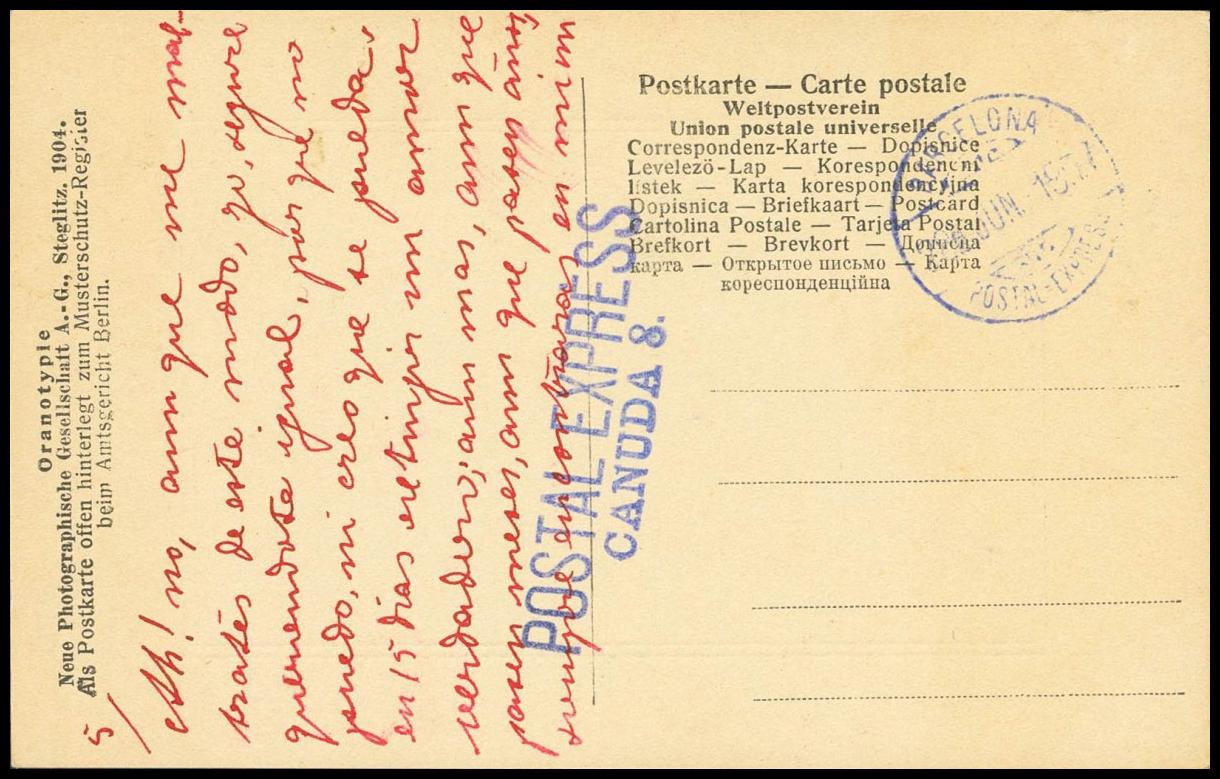 Oranotypie
Neue Photographische Gesellschaft A.-G., Steglitz. 1904.
Als Postkarte offen hinterlegt zum Musterschutz-Register
beim Amtsgericht Berlin.
5/
Ah! no, aun que me mal-
trates de este modo, yo, seguire
queriendote igual, por que no
puedo, ni creo que se pueda,
en 15 dias extingir un amor
verdadero; aun mas, aun que
pasen meses, aun que pasen años,
siempre encontraras en mi un
Postkarte — Carte postale
Weltpostverein
Union postale universelle
Correspondenz-Karte — Dopisnice
Levelezö-Lap — Korespondencni
listek — Karta korespondencyjna
Dopisnica — Briefkaart — Postcard
Cartolina Postale — Tarjeta Postal
Brefkort — Brevkort — Дописна
карта — Открытое письмо — Карта
кореспонденційна
BARCELONA
JUN.
POSTAL-EXPRES
POSTAL EXPRESS
CANUDA 8.